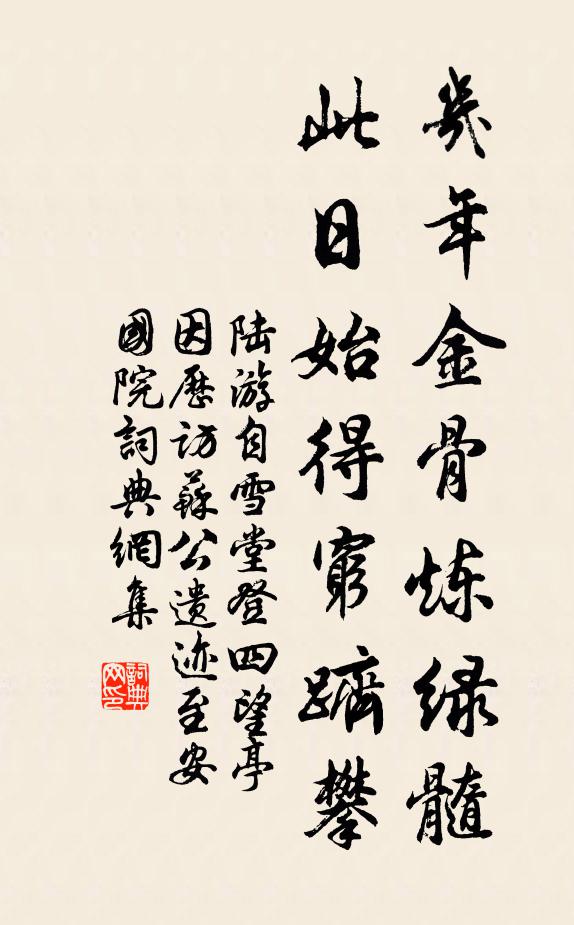 幾年金骨炼绿髓
此日始得窮躋攀
陆游自雪堂登四望亭
因歷访蘇公遗迹至安
國院詞典網集
詞典网印